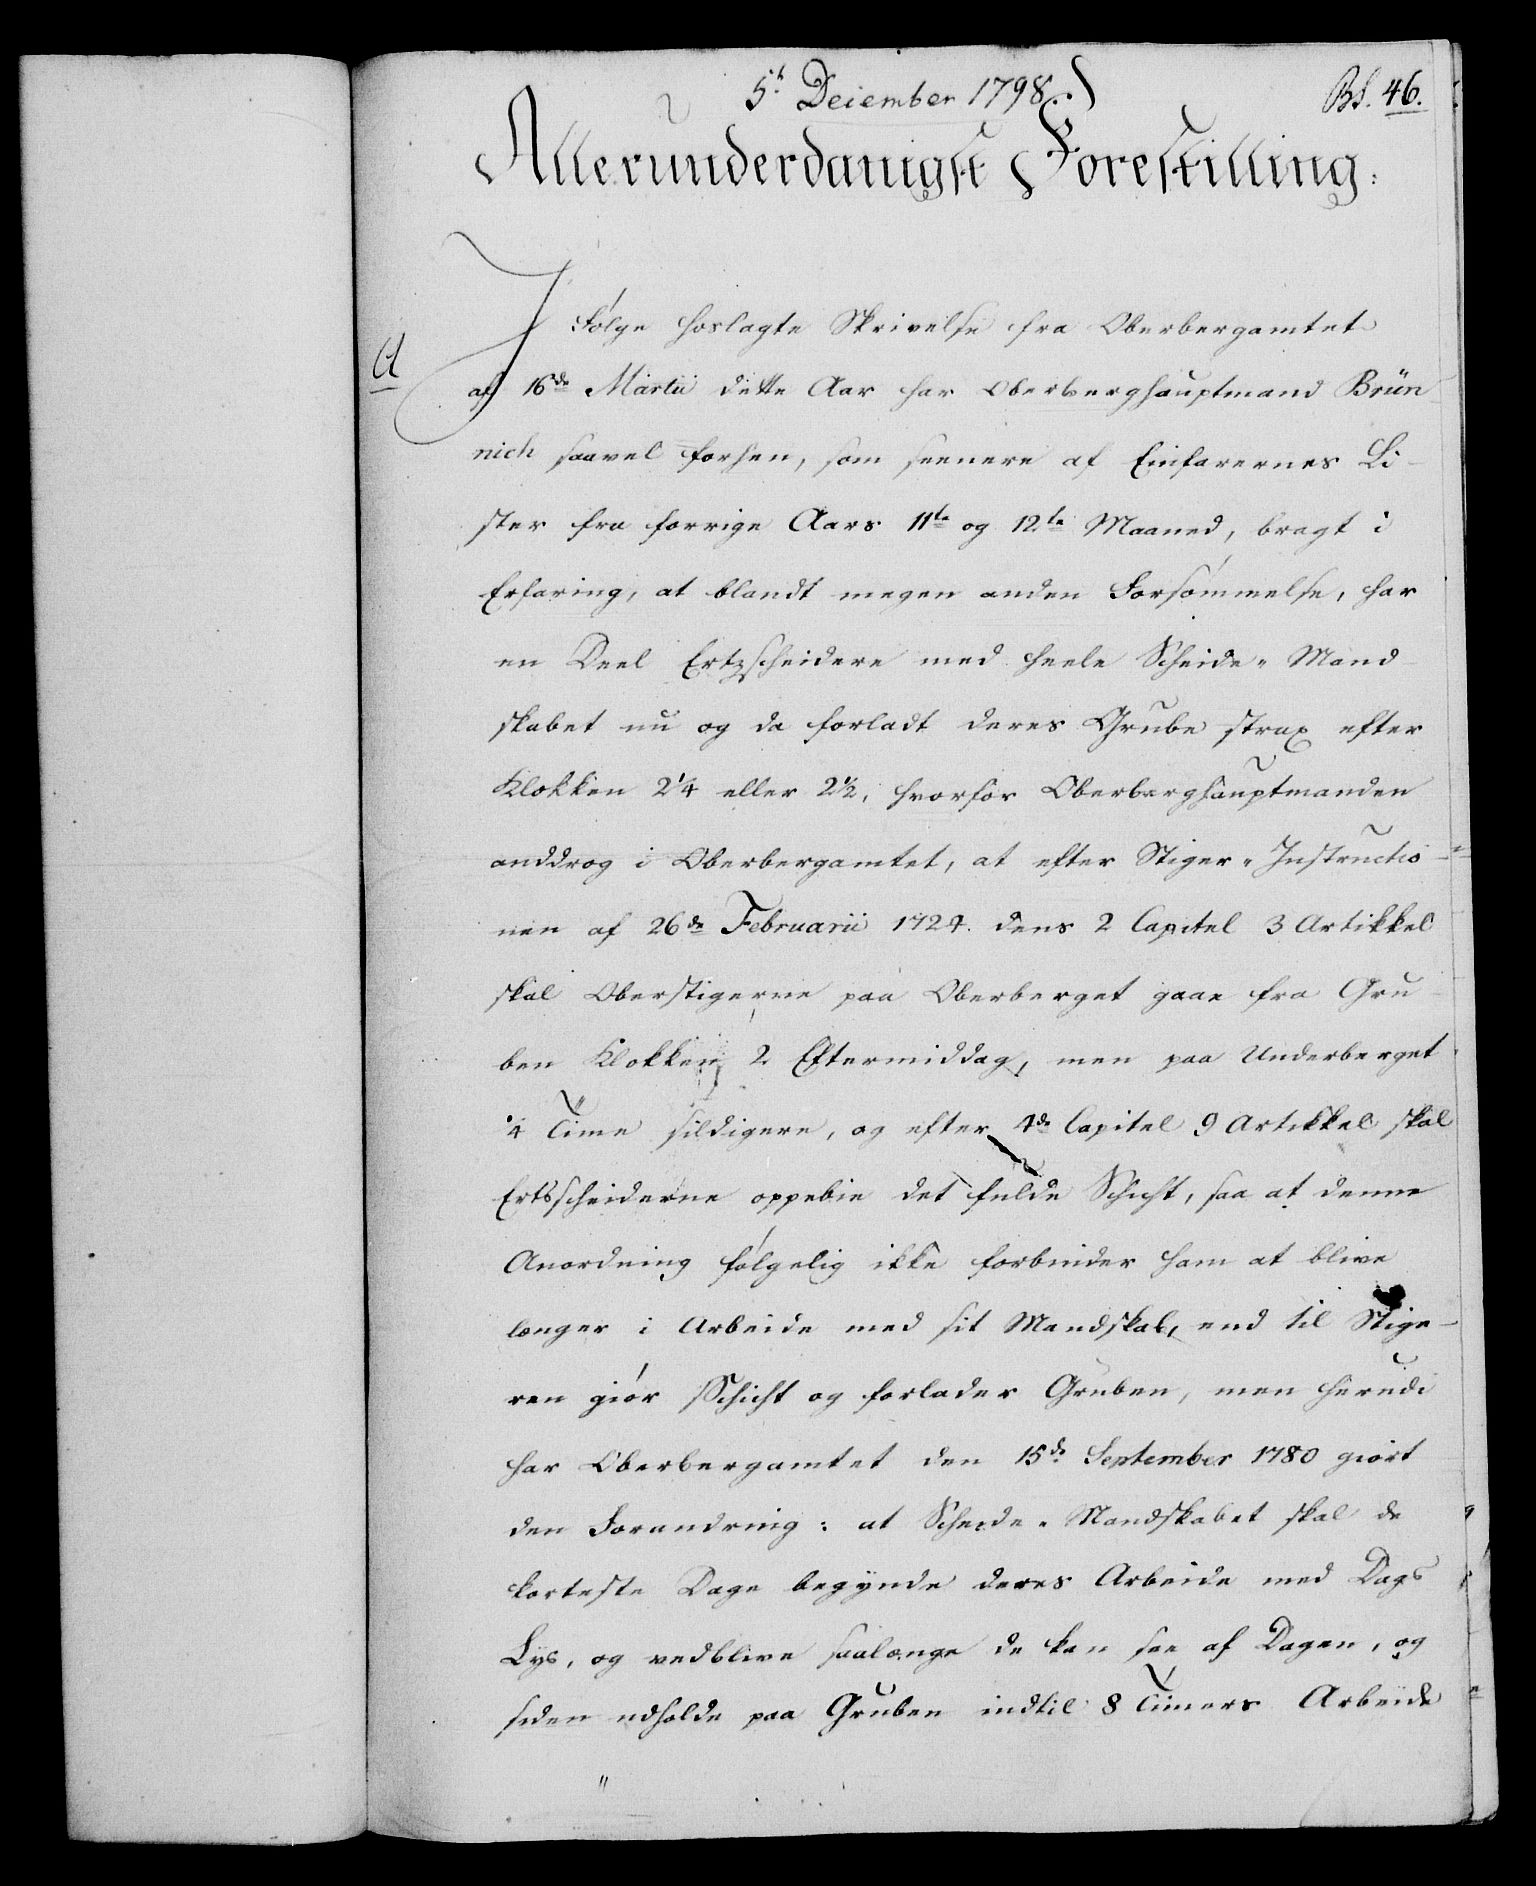 5t Decembr 1798.
BS. 46.
Allerunderdanigst Forestilling:
I Følge hoslagte Skrivelse fra Oberbergamtet
A
af 16de Martii dette Aar har Oberberghauptmand Brün
nich saavel forhen, som seenere af Einfarernes Li-
ster fra forrige Aars 11te og 12te Maaned, bragt i
Erfaring, at blandt megen anden Forsømmelse, har
en Deel Ertzscheidere med heele Scheide-Mand-
skabet nu og da forladt deres Grube strax efter
Klokken 2¼ eller 2½, hvorfor Oberberghauptmanden
anddrog i Oberbergamtet, at efter Stiger-Instructio-
nen af 26de Februarii 1724. dens 2 Capitel 3 Artikkel
skal Oberstigerne paa Oberberget gaae fra Gru-
ben Klokken 2 Eftermiddag, men paa Underberget
¼ Time sildigere, og efter 4de Capitel 9 Artikkel skal
Ertsscheiderne oppebie det fulde Schicht, saa at denne
Anordning følgelig ikke forbinder ham at blive
længer i Arbeide med sit Mandskab, end til Stige-
ren giør Schicht og forlader Gruben, men herudi
har Oberbergamtet den 15de September 1780 giort
den Forandring: at Scheide-Mandskabet skal de
korteste Dage begynde deres Arbeide med Dags
Lys, og vedblive saalænge de kan see af Dagen, og
siden udholde paa Gruben indtil 8 Timers Arbeide
"